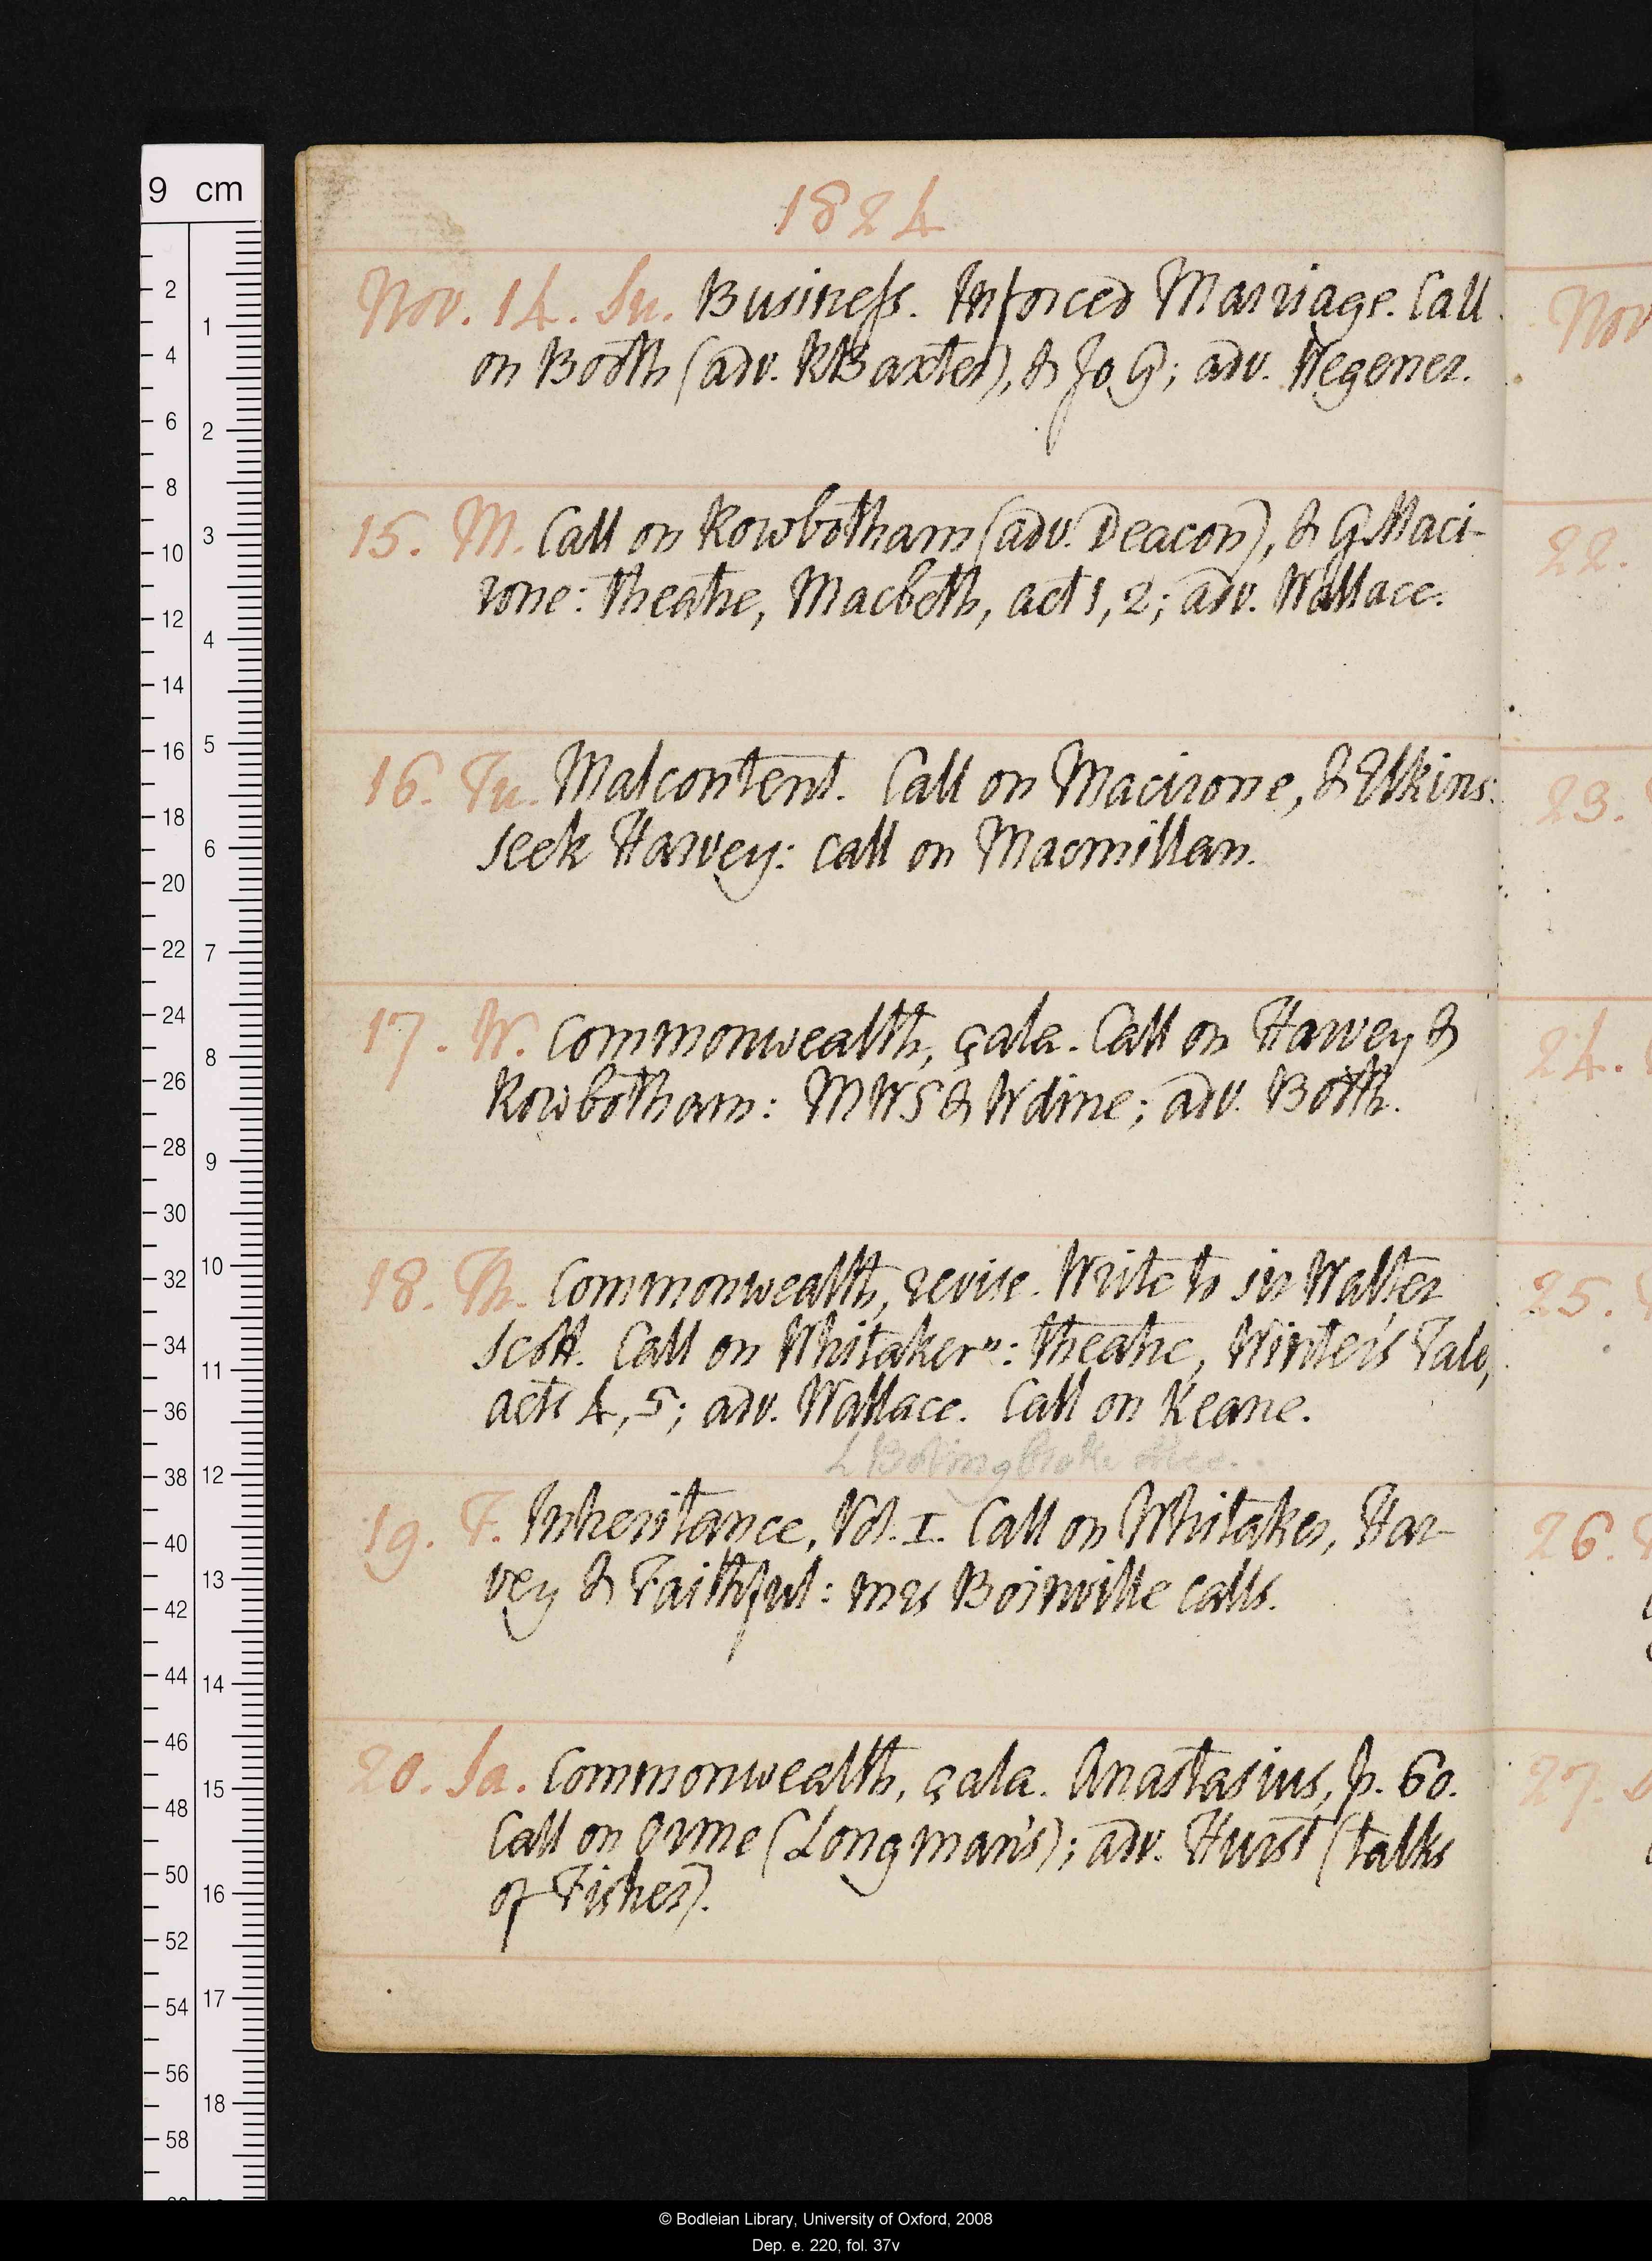 1824
Nov. 14. Su. Business. Inforced Marriage. Call
on Booth (adv. R Baxter), & Jo G; adv. Wegener.
15. M. Call on Rowbotham (adv. Deacon), & G Maci-
rone: theatre, Macbeth, act 1, 2; adv. Wallace.
16. Tu. Malcontent. Call on Macirone, & Elkins:
seek Harvey: call on Macmillan.
17. W. Commonwealth, çala. Call on Harvey &
Rowbotham: MWS & W dine; adv. Booth.
18. Th. Commonwealth, revise. Write to sir Walter
Scott. Call on Whitaker": theatre, Winter's Tale,
acts 4, 5; adv. Wallace. Call on Keane.
L Bolingbroke
19. F. Inheritance, Vol. I. Call on Whitaker, Har-
vey & Faithful: mrs Boinville calls.
20. Sa. Commonwealth, çala. Anastasius, p. 60.
Call on Orme (Longman's); adv. Hurst (talks
of Fisher).
Nov
22.
23.
24.
25.
26.
27.
9 cm
2
4
6
8
10
12
14
16
18
20
22
24
26
28
30
32
34
36
38
40
42
44
46
48
50
52
54
56
58
1
2
3
4
5
6
7
8
9
10
11
12
13
14
15
16
17
18
© Bodleian Library, University of Oxford, 2008
Dep. e. 220, fol. 37v